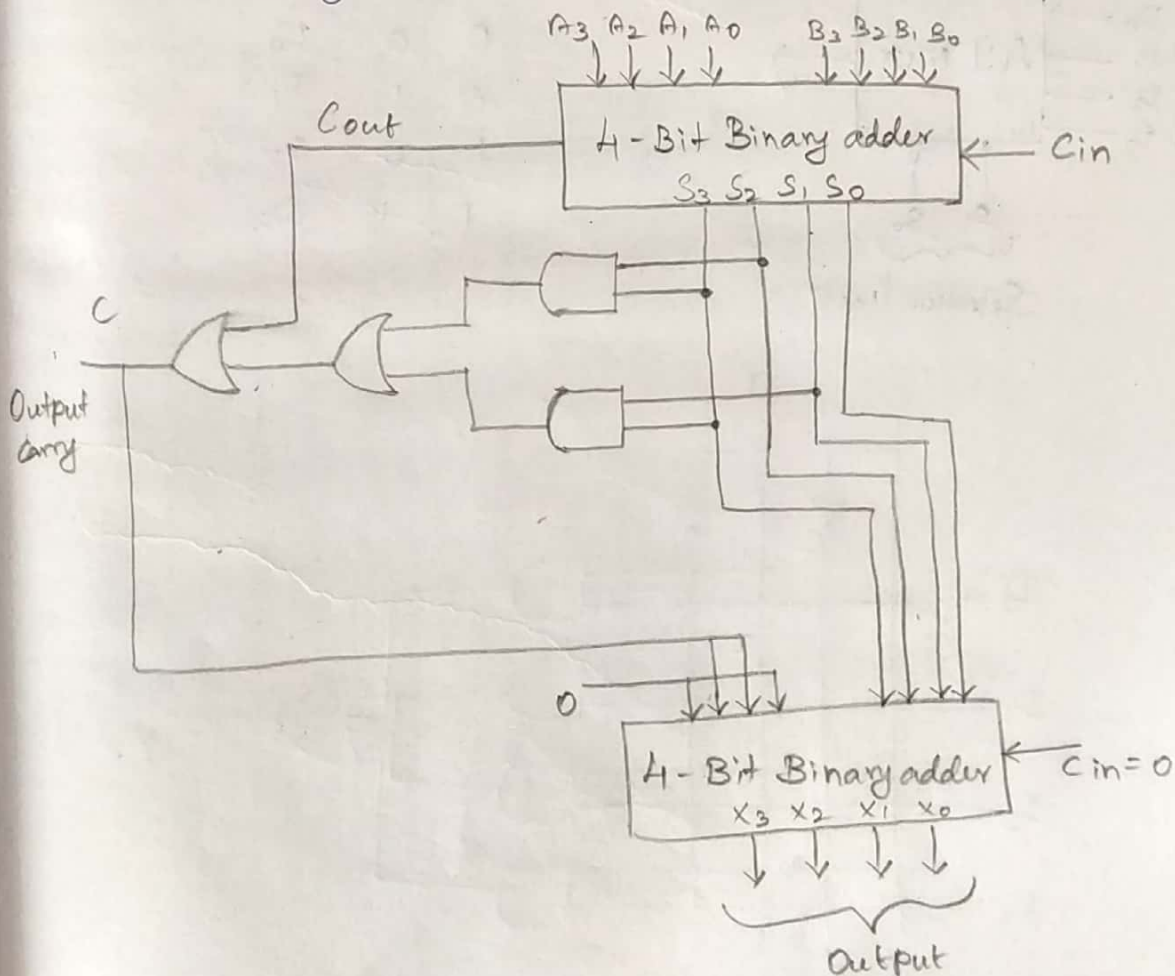 A3 A2 A1 A0 B3 B2 B1 B0
Cout
4-Bit Binary adder
Cin
S3 S2 S1 S0
C
Output
Carry
0
4-Bit Binary adder
Cin=0
X3 X2 X1 X0
Output